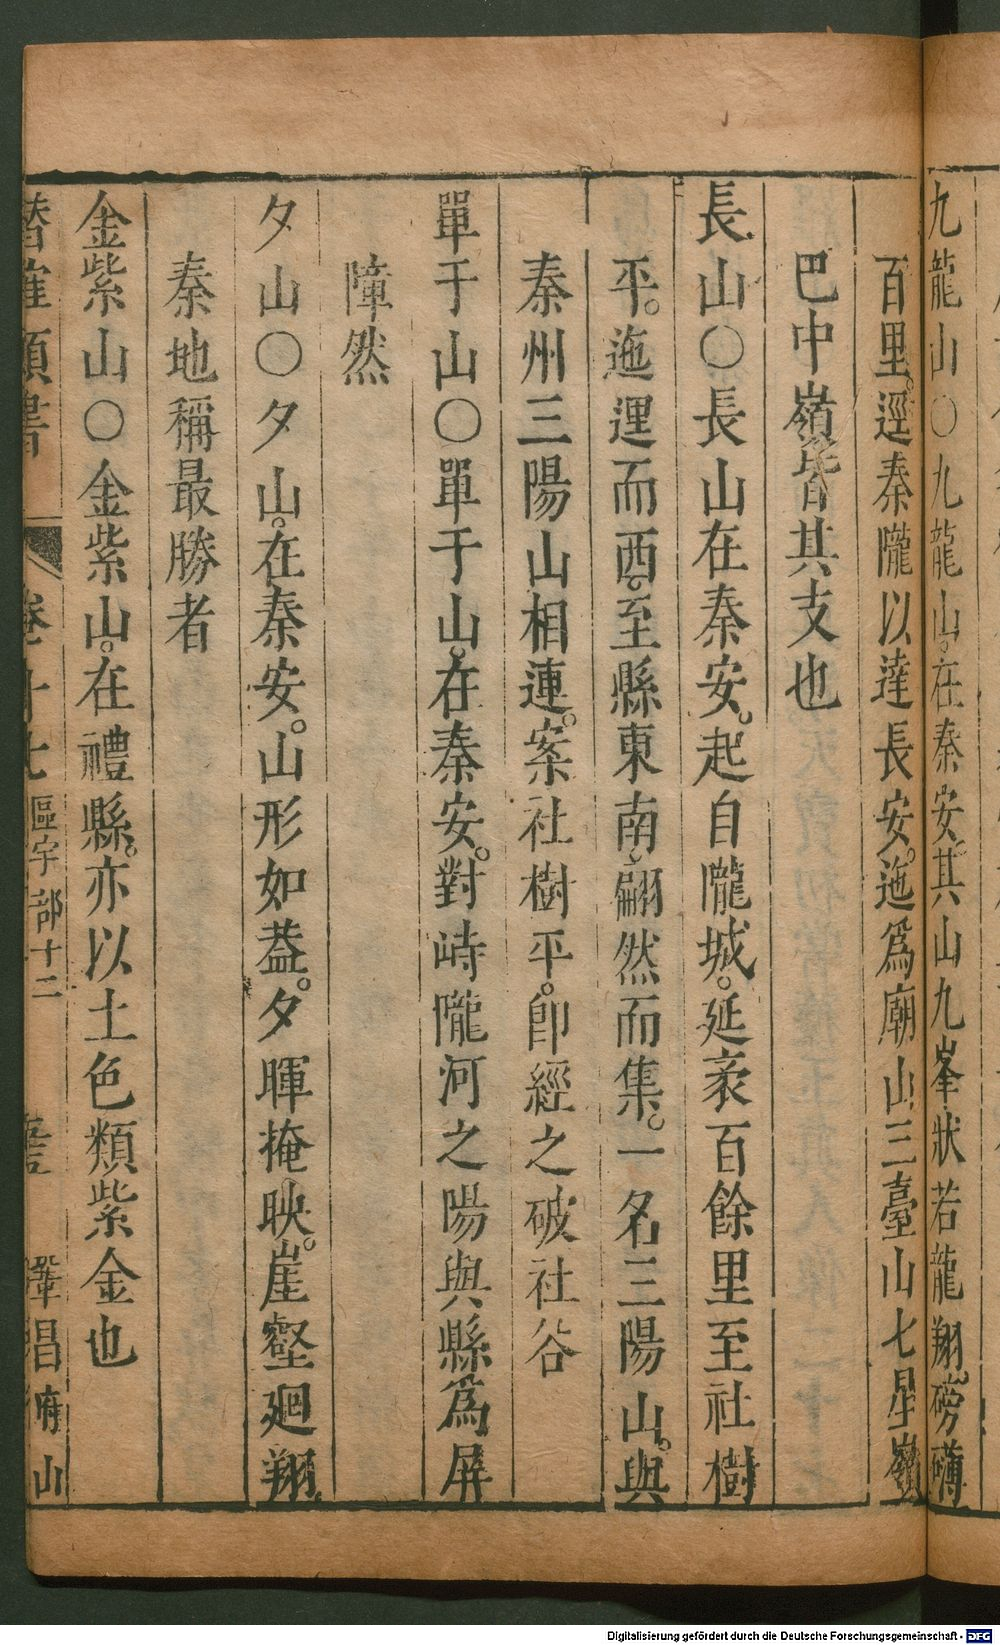 九龍山○九龍山。在秦安。其山九峯狀若龍翔。磅礴
百里。逕秦隴以達長安。迤爲廟山三臺山七星嶺
巴中嶺皆其支也
長山○長山在秦安。起自隴城。延袤百餘里至社樹
平。迤邐而西。至縣東南。翩然而集。一名三陽山。與
秦州三陽山相連。案社樹平。卽經之破社谷
單于山○單于山。在秦安。對峙隴河之陽與縣爲屏
障然
夕山○夕山。在秦安。山形如葢。夕暉掩映。崖壑廻翔。
秦地稱最勝者
金紫山○金紫山。在禮縣。亦以土色類紫金也
潛確類書 卷十七 區宇部十二 鞏昌府山
Digitalisierung gefördert durch die Deutsche Forschungsgemeinschaft - DFG